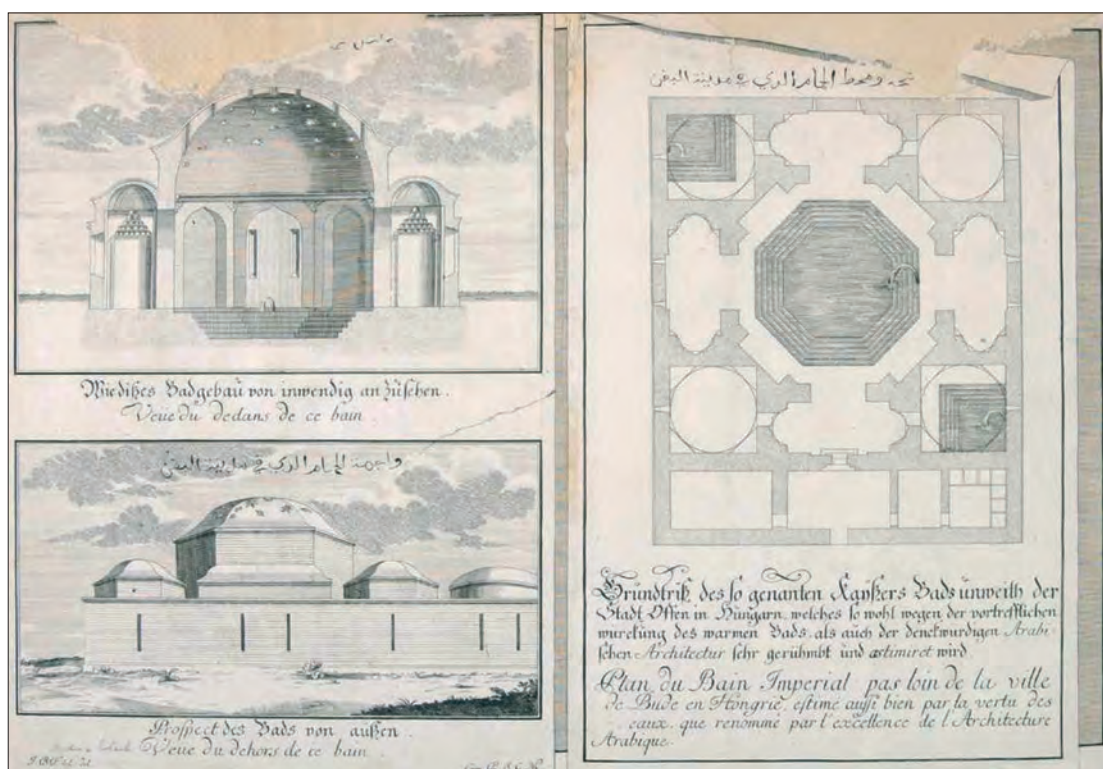 Wie dißes Badgebaŭ von inwendig an Zŭsehen.
Veüe du dedans de ce bain
واجهة الحمام الدي في مدينة البفن
Prospect des Bads von außen.
Veüe du dehors de ce bain.
الحمام الدي في مدينة البفن
Grŭndtriß des so genanten Kaÿßers Bads ŭnweith der
Stadt Offen in Hŭngarn, welches so wohl wegen der vortrefflichen
würckŭng des warmen Bads, als auch der denckwürdigen Arabi-
schen Architectur sehr gerühmbt und æstimiret wird.
Plan du Bain Imperial pas loin de la ville
de Bude en Hongrie, estimé aussi bien par la vertu des
eaux, que renommé par l'excellence de l'Architecture
Arabique.